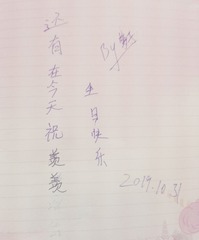 还有在今天祝羡羡
生日快乐
By
2019.10.31